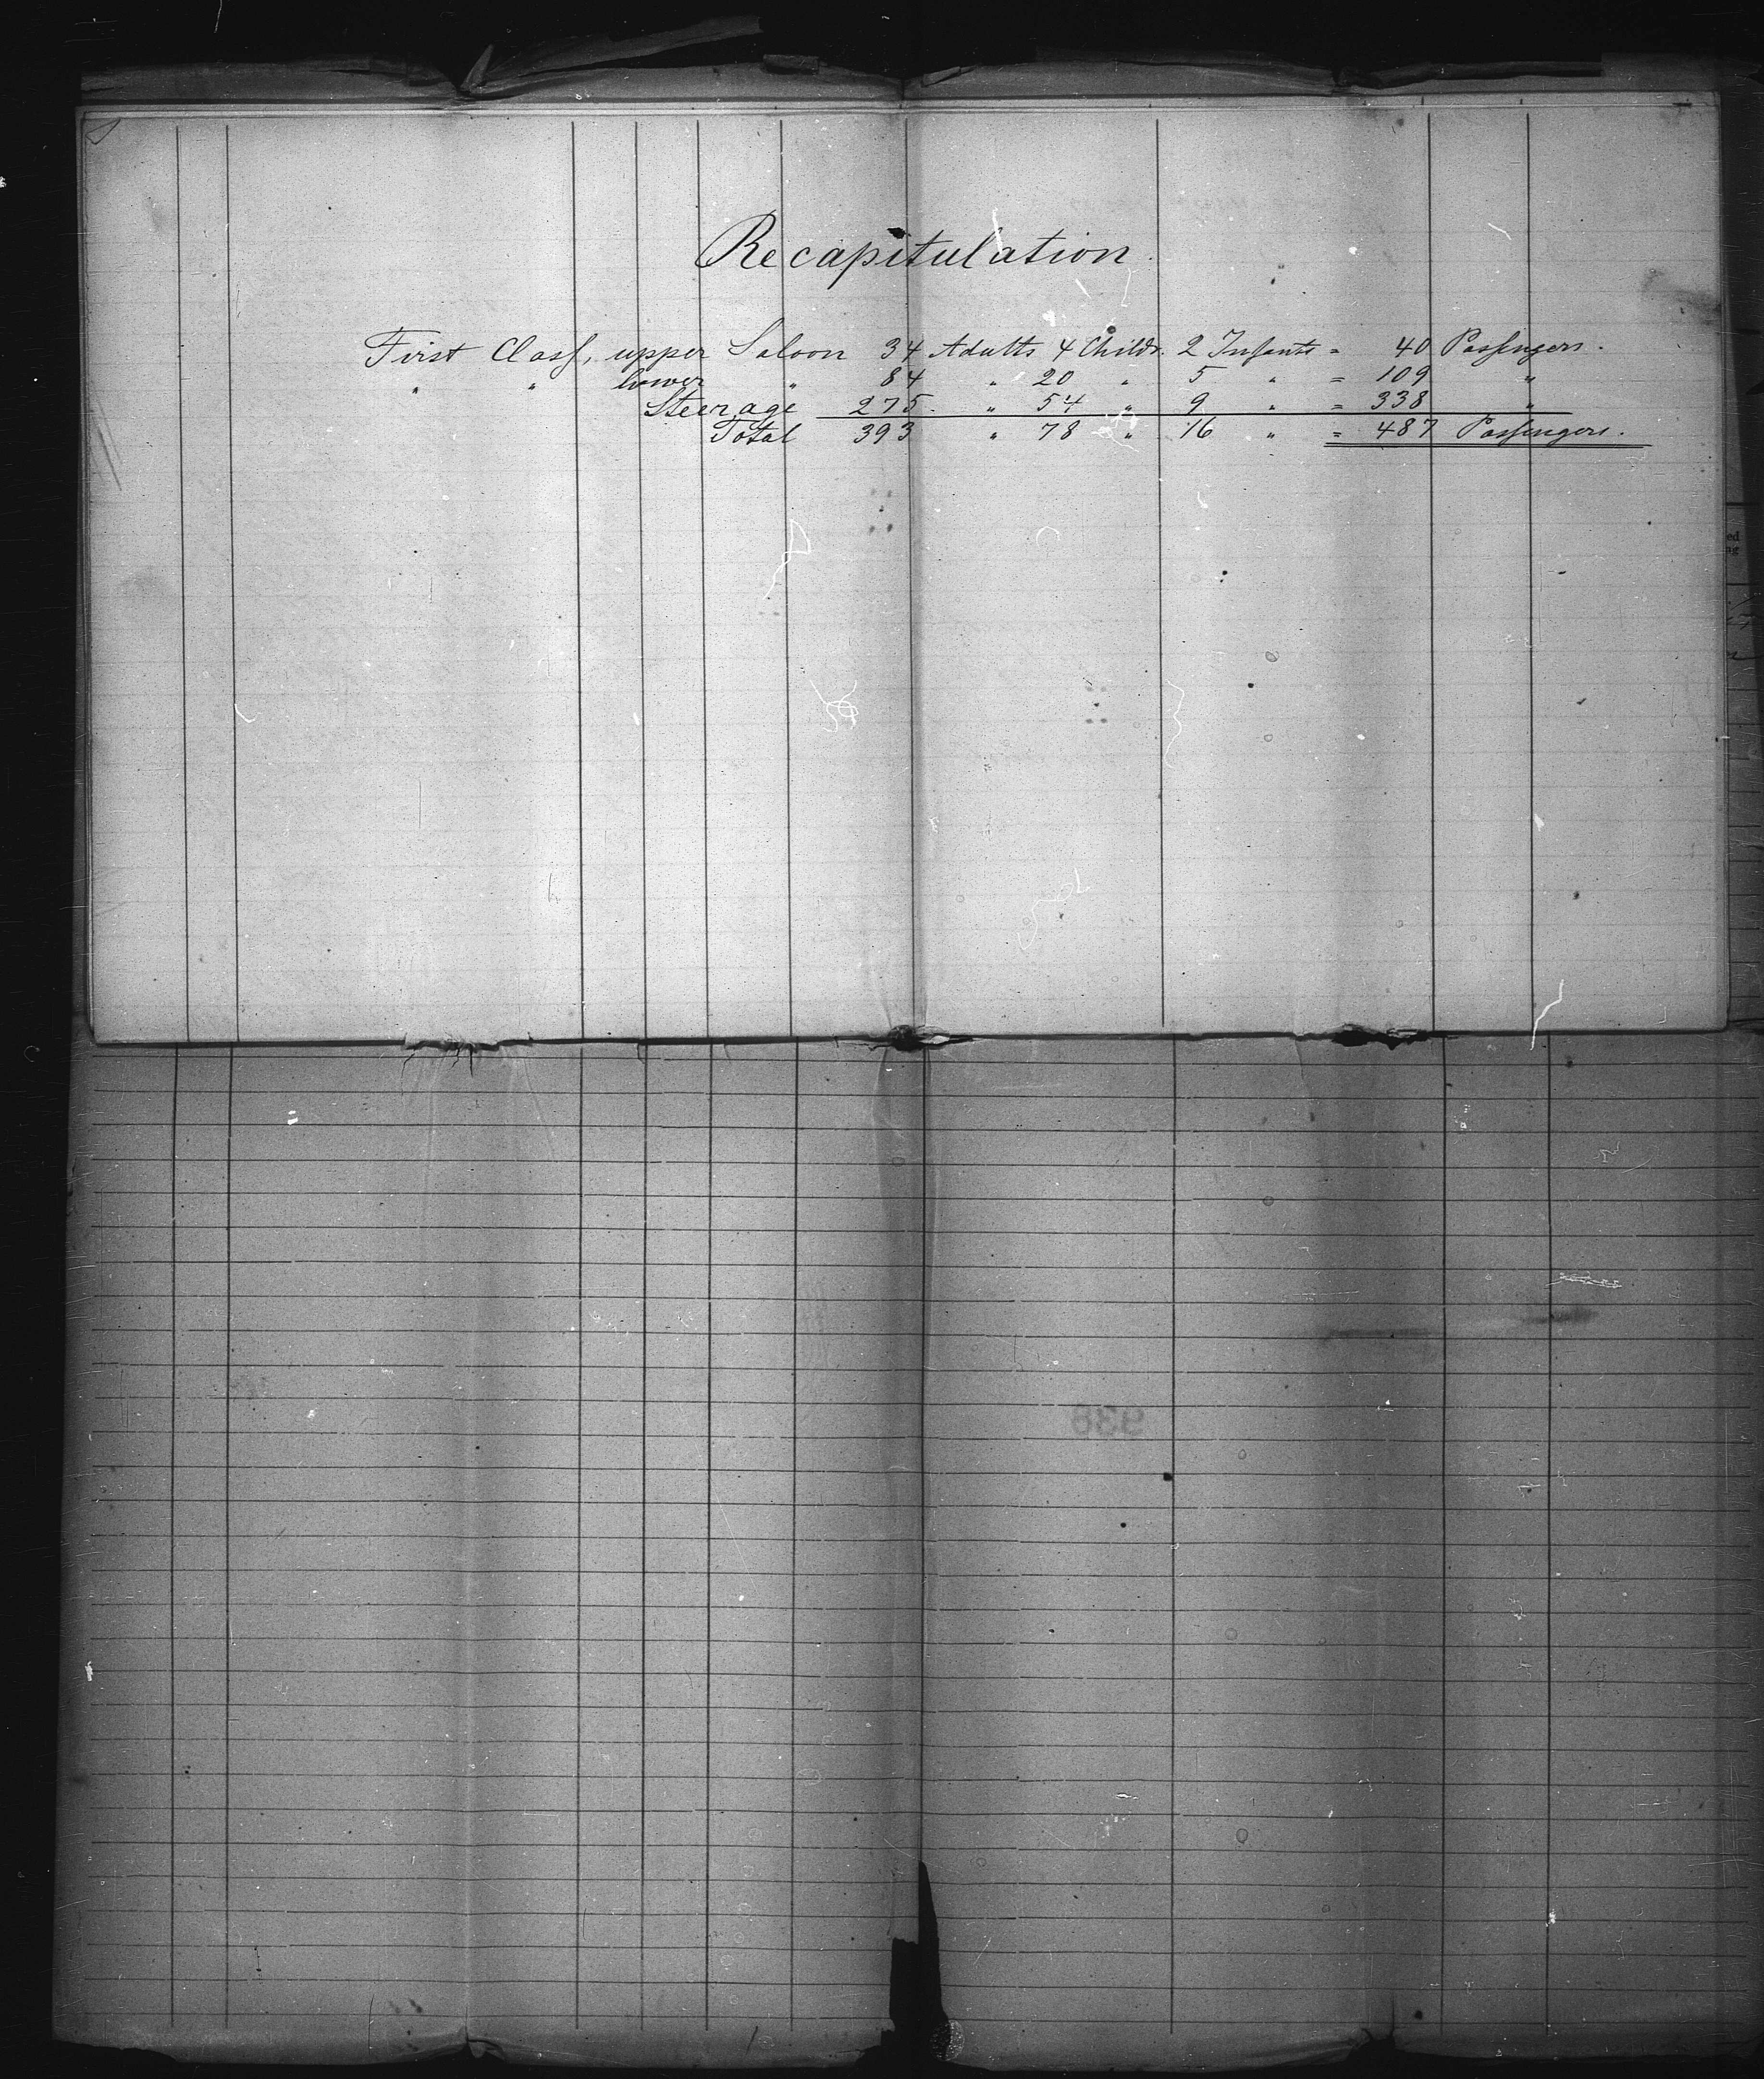 Recapitulation.
First Class, upper Saloon 34 Adults 4 Childr. 2 Infants = 40 Passengers.
" " lower " 84 " 20 " 5 " = 109 "
Steerage 275. " 54 " 9 " = 338 "
Total 393 " 78 " 16 " = 487 Passengers.
938